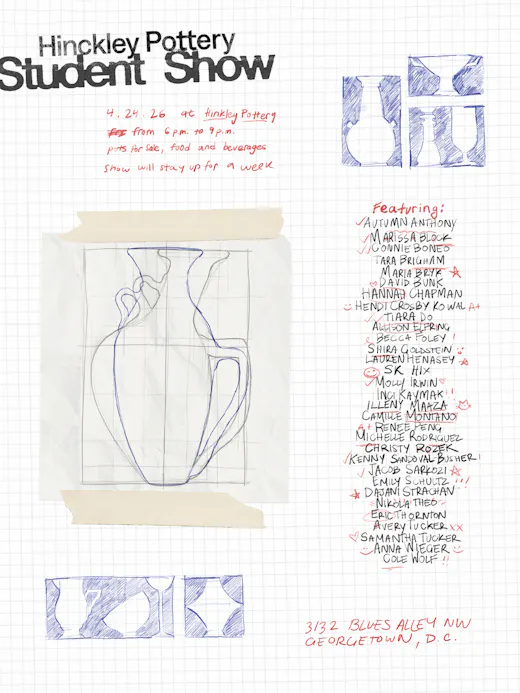 Hinckley Pottery
Student Show
4.24.26 at Hinkley Pottery
from 6 p.m. to 9 p.m.
pots for sale, food and beverages
show will stay up for a week
Featuring:
AUTUMN ANTHONY
MARISSA BLOCK
CONNIE BONEO
TARA BRIGHAM
MARIA BRYK
DAVID BUNK
HANNAH CHAPMAN
HENDI CROSBY KOWAL A+
TIARA DO
ALLISON EFRING
BECCA FOLEY !
SHIRA GOLDSTEIN
LAUREN HENASEY
SK HIX
MOLLY IRWIN
INCI KAYMAK !!
ILLENY MAAZA
CAMILLE MONTANO
A+ RENEE PENG
MICHELLE RODRIGUEZ
CHRISTY ROZEK
KENNY SANDOVAL-BUSHER!
JACOB SARKOZI
EMILY SCHULTZ !!!
DAJANI STRACHAN
NIKOLA THEO
ERIC THORNTON
AVERY TUCKER XX
SAMANTHA TUCKER
ANNA WIEGER
COLE WOLF !!
3132 BLUES ALLEY NW
GEORGETOWN, D.C.